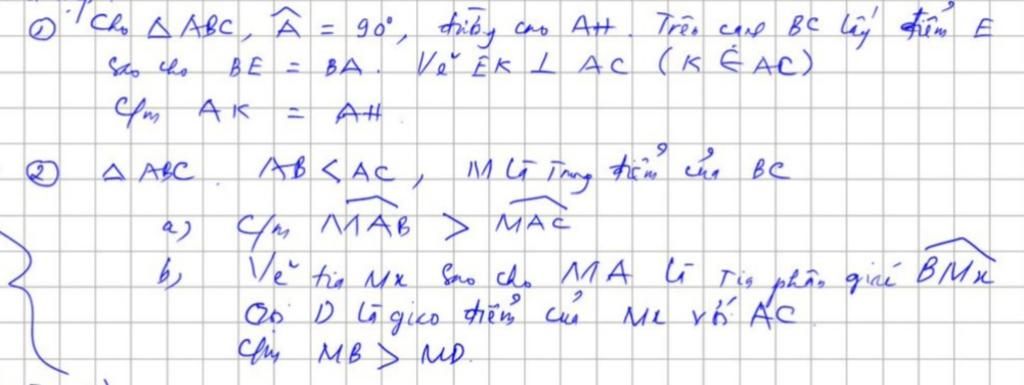 ① Cho △ ABC, Â = 90°, đường cao AH. Trên cạnh BC lấy điểm E
sao cho BE = BA. Vẽ EK ⊥ AC (K ∈ AC)
C/m AK = AH
② △ ABC. AB < AC, M là Trung điểm của BC
a) C/m \widehat{MAB} > \widehat{MAC}
b) Vẽ tia Mx sao cho MA là Tia phân giác \widehat{BMx}
Gọi D là giao điểm của Mx với AC.
C/m MB > MD.